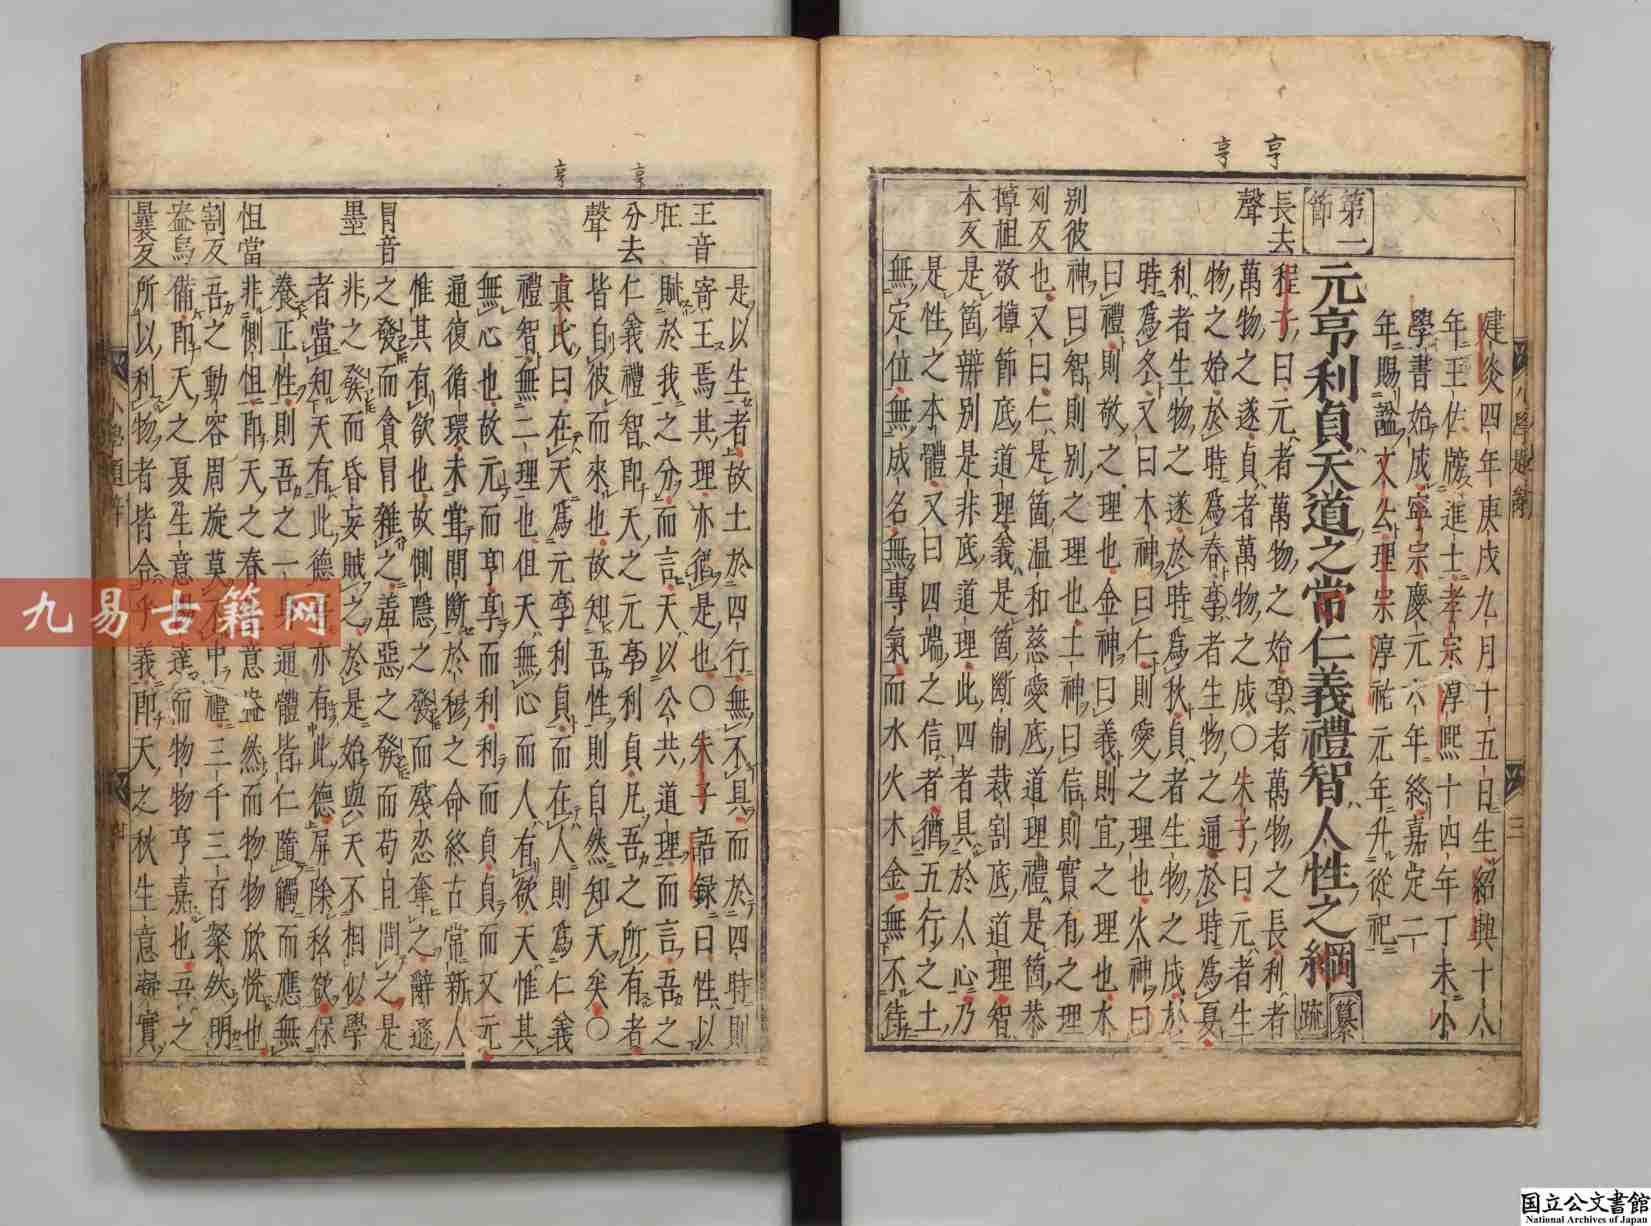 亨
亨
第一
節
長去
聲
别彼
列反
撙祖
本反
建炎四年庚戌九月十五日生紹興十八
年王佐牓進士孝宗淳熙十四年丁未小
學書始成寧宗慶元六年終嘉定二
年賜謚文公理宗淳祐元年升從祀
元亨利貞天道之常仁義禮智人性之綱
纂
疏
程子曰元者萬物之始亨者萬物之長利者
萬物之遂貞者萬物之成〇朱子曰元者生
物之始於時爲春亨者生物之通於時爲夏
利者生物之遂於時爲秋貞者生物之成於
時爲冬又曰木神曰仁則愛之理也火神曰
曰禮則敬之理也金神曰義則宜之理也水
神曰智則别之理也土神曰信則實有之理
也又曰仁是箇温和慈愛底道理禮是箇恭
敬撙節底道理義是箇斷制裁割底道理智
是箇辨别是非底道理此四者具於人心乃
是性之本體又曰四端之信者猶五行之土
無定位無成名無專氣而水火木金無不待
小學題辭
三
亨
亨
王音
旺
分去
聲
冒音
墨
怛當
割反
盎烏
曩反
是以生者故土於四行無不具而於四時則
寄王焉其理亦猶是也〇朱子語録曰性以
賦於我之分而言天以公共道理而言吾之
仁義禮智即天之元亨利貞凡吾之所有者
皆自彼而來也故知吾性則自然知天矣〇
真氏曰在天爲元亨利貞而在人則爲仁義
禮智無二理也但天無心而人有欲天惟其
無心也故元而亨亨而利利而貞貞而又元
通復循環未嘗間斷於穆之命終古常新人
惟其有欲也故惻隱之發而殘忍奪之辭遜
之發而貪冒雜之羞惡之發而苟且間之是
非之發而昏妄賊之於是始與天不相似學
者當知天有此德吾亦有此德屏除私欲保
養正性則吾之一身通體皆仁隨觸而應無
非惻怛即天之春意盎然而物物欣悅也
吾之動容周旋莫不中禮三千三百粲然明
備即天之夏生意暢達而物物亨嘉也吾之
所以利物者皆合乎義即天之秋生意凝實
九易古籍网
国立公文書館
National Archives of Japan